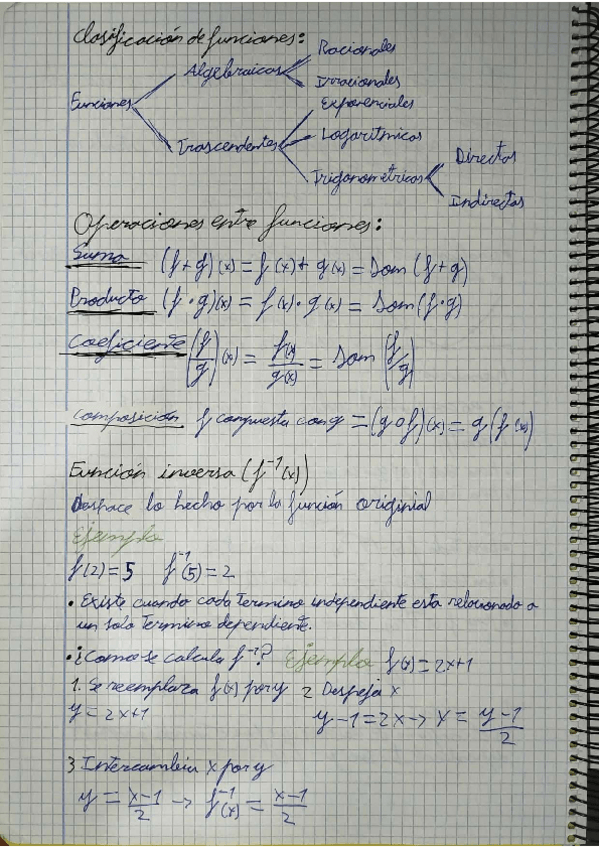 Clasificación de funciones:
Racionales
Algebraicas
Irracionales
Funciones
Exponenciales
Logarítmicas
Trascendentes
Directas
Trigonométricas
Indirectas
Operaciones entre funciones:
Suma (f+g)(x) = f(x) + g(x) = Dom (f+g)
Producto (f·g)(x) = f(x) · g(x) = Dom (f·g)
Coeficiente (f/g)(x) = f(x)/g(x) = Dom (f/g)
Composición f compuesta con g = (g o f)(x) = g(f(x))
Función inversa (f⁻¹(x))
Deshace lo hecho por la función originial
Ejemplo
f(2)=5 f⁻¹(5)=2
• Existe cuando cada termino independiente esta relacionado a
un solo termino dependiente.
• ¿Como se calcula f⁻¹? Ejemplo f(x)=2x+1
1. Se reemplaza f(x) por y 2 Despeja x
y=2x+1 y-1=2x→ x = y-1/2
3 Intercambia x por y
y = x-1/2 → f⁻¹(x) = x-1/2